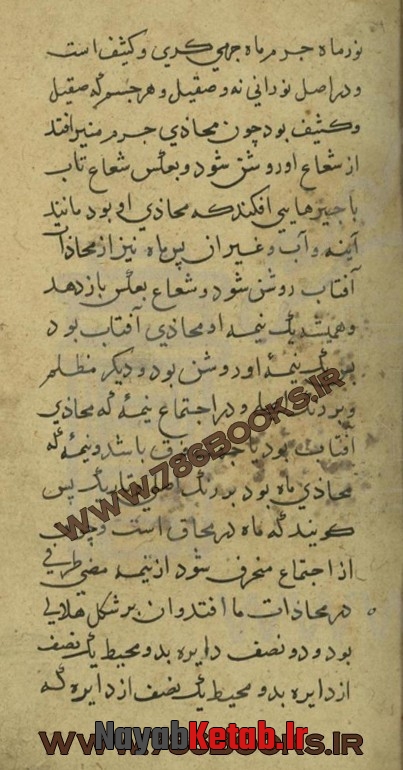 نور ماه جرم ماه جرمی کری و کثیف است
و در اصل نورانی نه و صقیل و هر جسم که صقیل
و کثیف بود چون محاذی جرم منیر افتد
از شعاع او روشن شود و بعکس شعاع تاب
با چیزهایی افکند که محاذی او بود مانند
آینه و آب و غیر آن پس ماه نیز از محاذات
آفتاب روشن شود و شعاع بعکس باز دهد
و همیشه یک نیمه او محاذی آفتاب بود
پس یک نیمهٔ او روشن بود و دیگر مظلم
و در اجتماع نیمهٔ که محاذی
آفتاب بود باشد و نیمهٔ که
محاذی ماه بود بر رنگ پس
گویند که ماه در محاق است و چون
از اجتماع منحرف شود از نیمه مضی طرفی
در محاذات ما افتد و آن بر شکل هلالی
بود و دو نصف دایره بدو محیط یک نصف
از دایره بدو محیط یک نصف از دایره که
WWW.786BOOKS.IR
WWW.786BOOKS.IR
NayabKetab.Ir